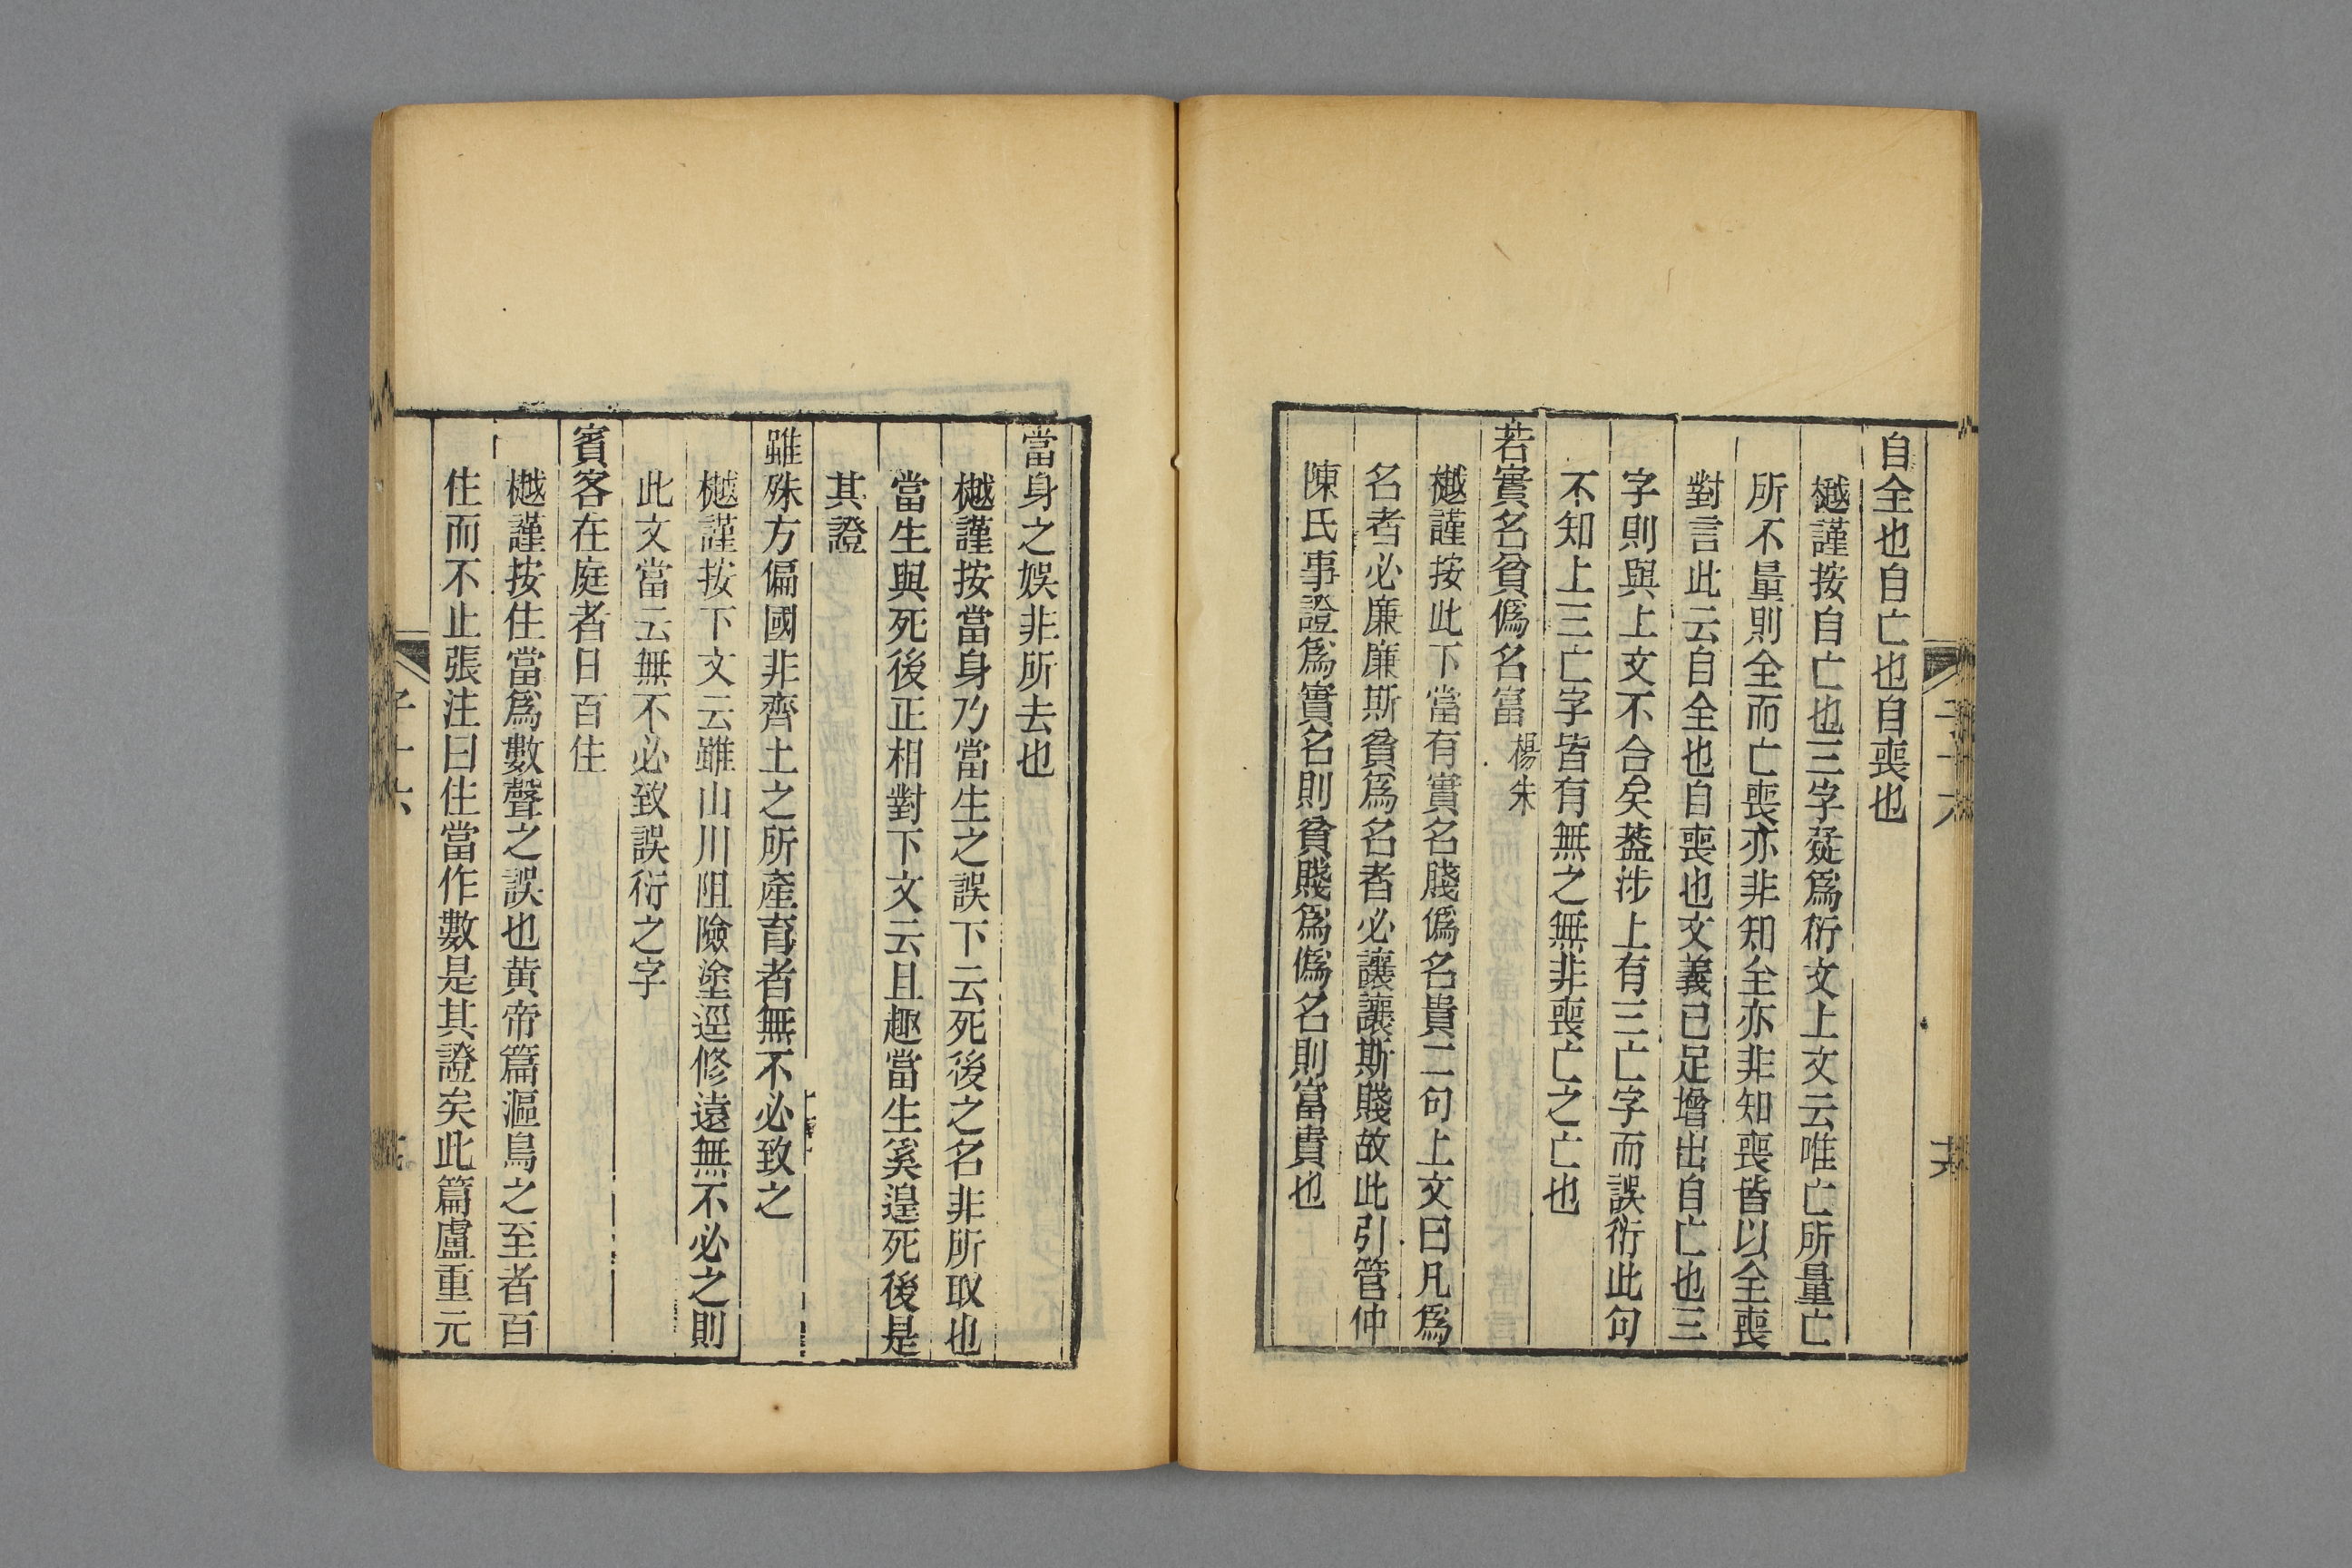 自全也自亡也自喪也
樾謹按自亡也三字疑爲衍文上文云唯亡所量亡
所不量則全而亡喪亦非知全亦非知喪皆以全喪
對言此云自全也自喪也文義已足增出自亡也三
字則與上文不合矣葢涉上有三亡字而誤衍此句
不知上三亡字皆有無之無非喪亡之亡也
若實名貧僞名富楊朱
樾謹按此下當有實名賤僞名貴二句上文曰凡爲
名者必廉廉斯貧爲名者必讓讓斯賤故此引管仲
陳氏事證爲實名則貧賤爲僞名則富貴也
當身之娛非所去也
樾謹按當身乃當生之誤下云死後之名非所取也
當生與死後正相對下文云且趣當生奚遑死後是
其證
雖殊方偏國非齊土之所產育者無不必致之
樾謹按下文云雖山川阻險塗逕修遠無不必之則
此文當云無不必致誤衍之字
賓客在庭者日百住
樾謹按住當爲數聲之誤也黄帝篇漚鳥之至者百
住而不止張注曰住當作數是其證矣此篇盧重元